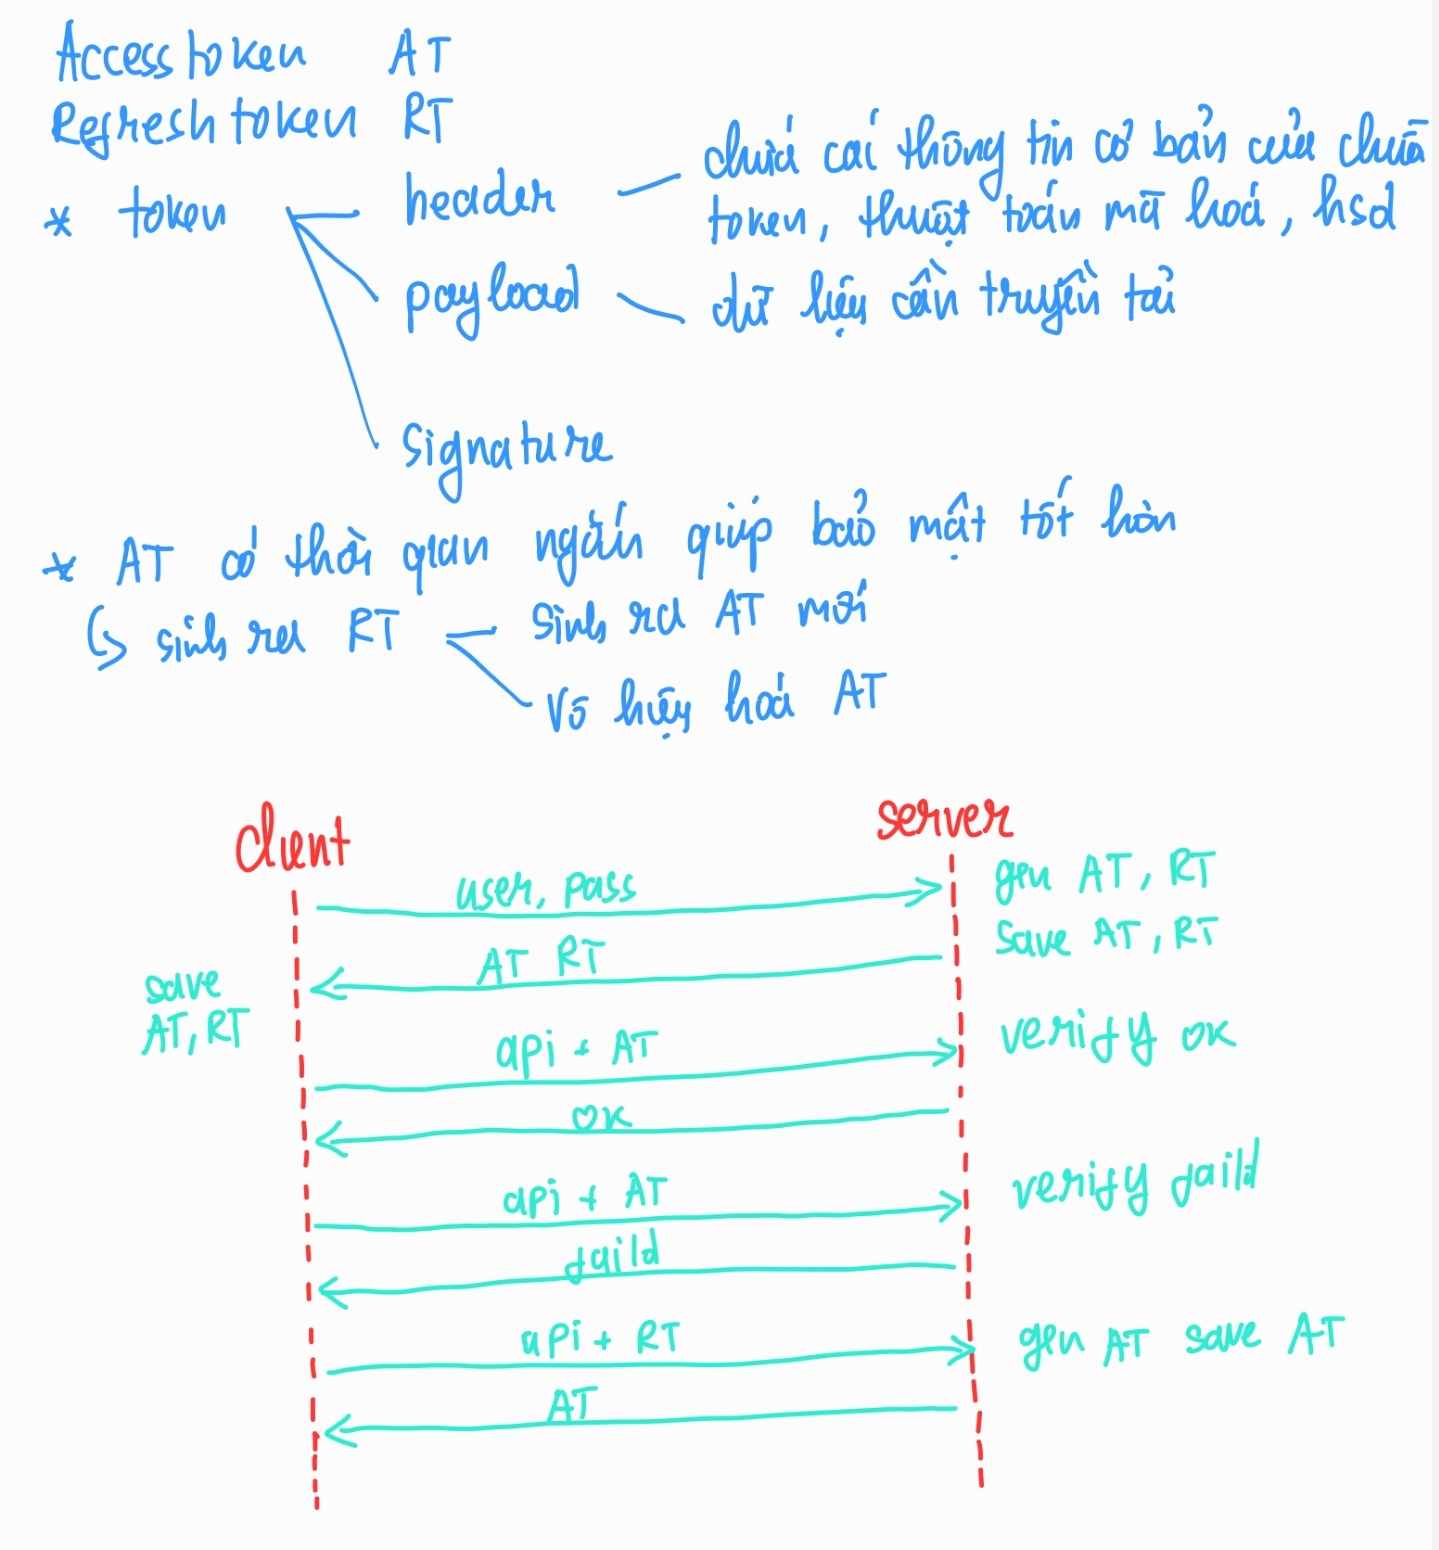 Access token AT
Regresh token RT
* token
header
chứa cái thông tin cơ bản của chuỗi
token, thuật toán mã hoá, hsd
payload
dữ liệu cần truyền tải
signature
* AT có thời gian ngắn giúp bảo mật tốt hơn
sinh ra RT
sinh ra AT mới
vô hiệu hoá AT
client
server
user, pass
gen AT, RT
save AT, RT
AT RT
save
AT, RT
api + AT
verify ok
ok
api + AT
verify faild
faild
api + RT
gen AT save AT
AT